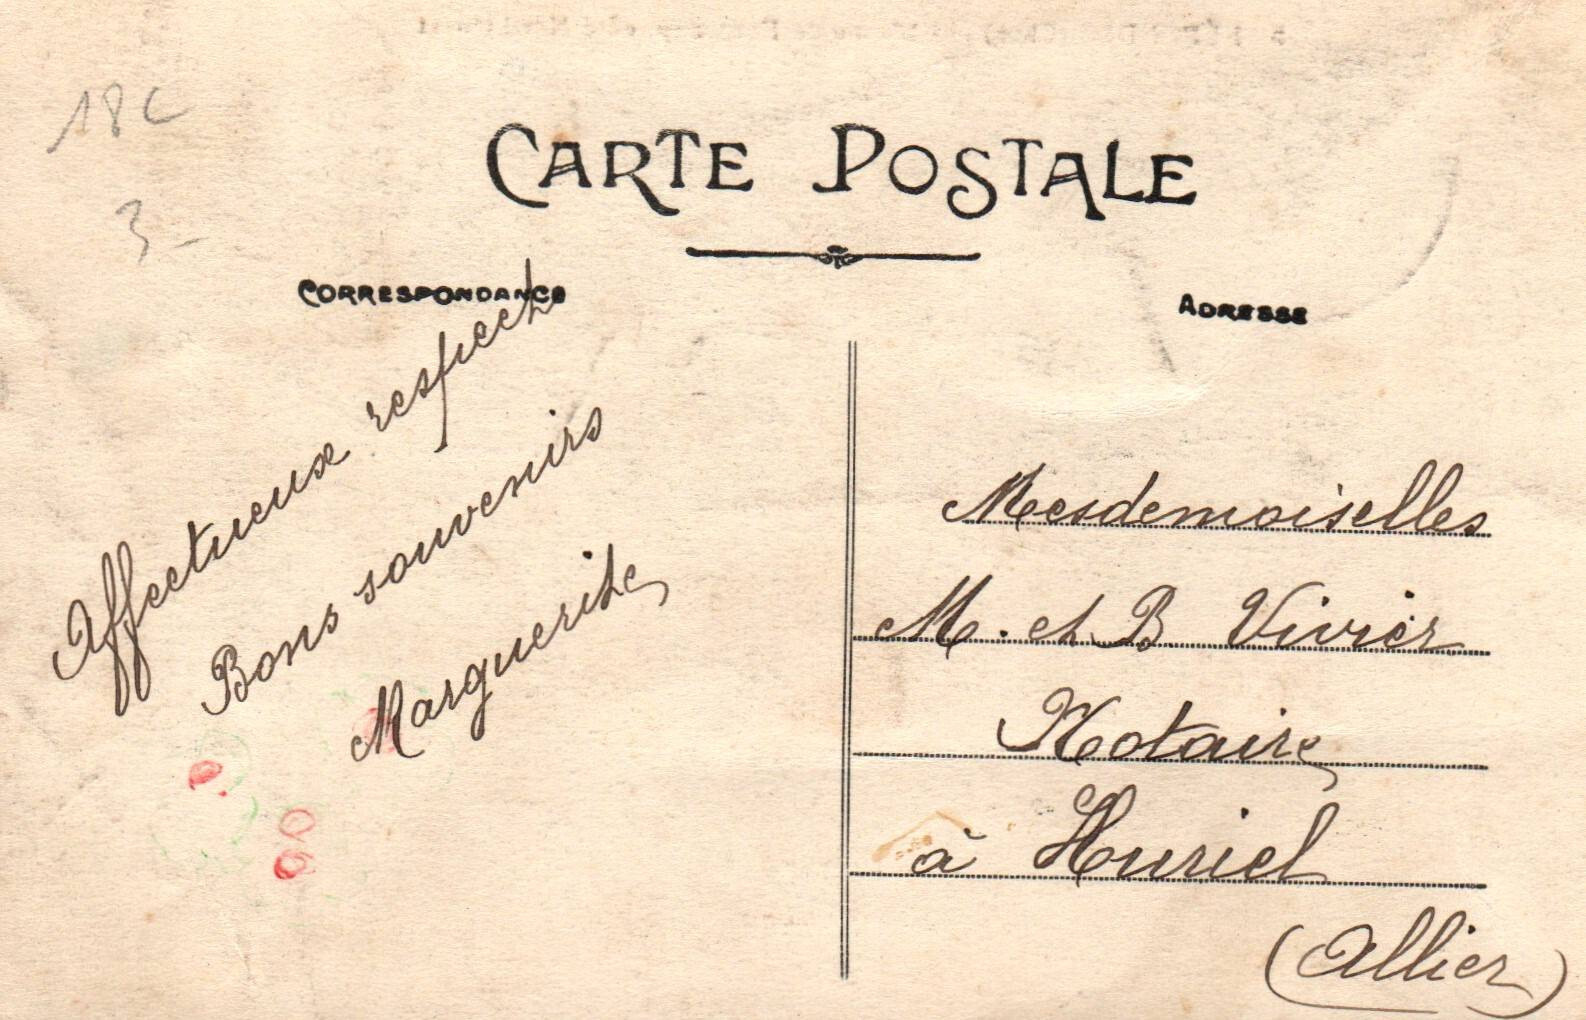 18c
3-
CARTE POSTALE
CORRESPONDANCE
ADRESSE
Affectueux respect
Bons souvenirs
Marguerite
Mesdemoiselles
M. et B Vivier
Notaire
à Huriel
(Allier)